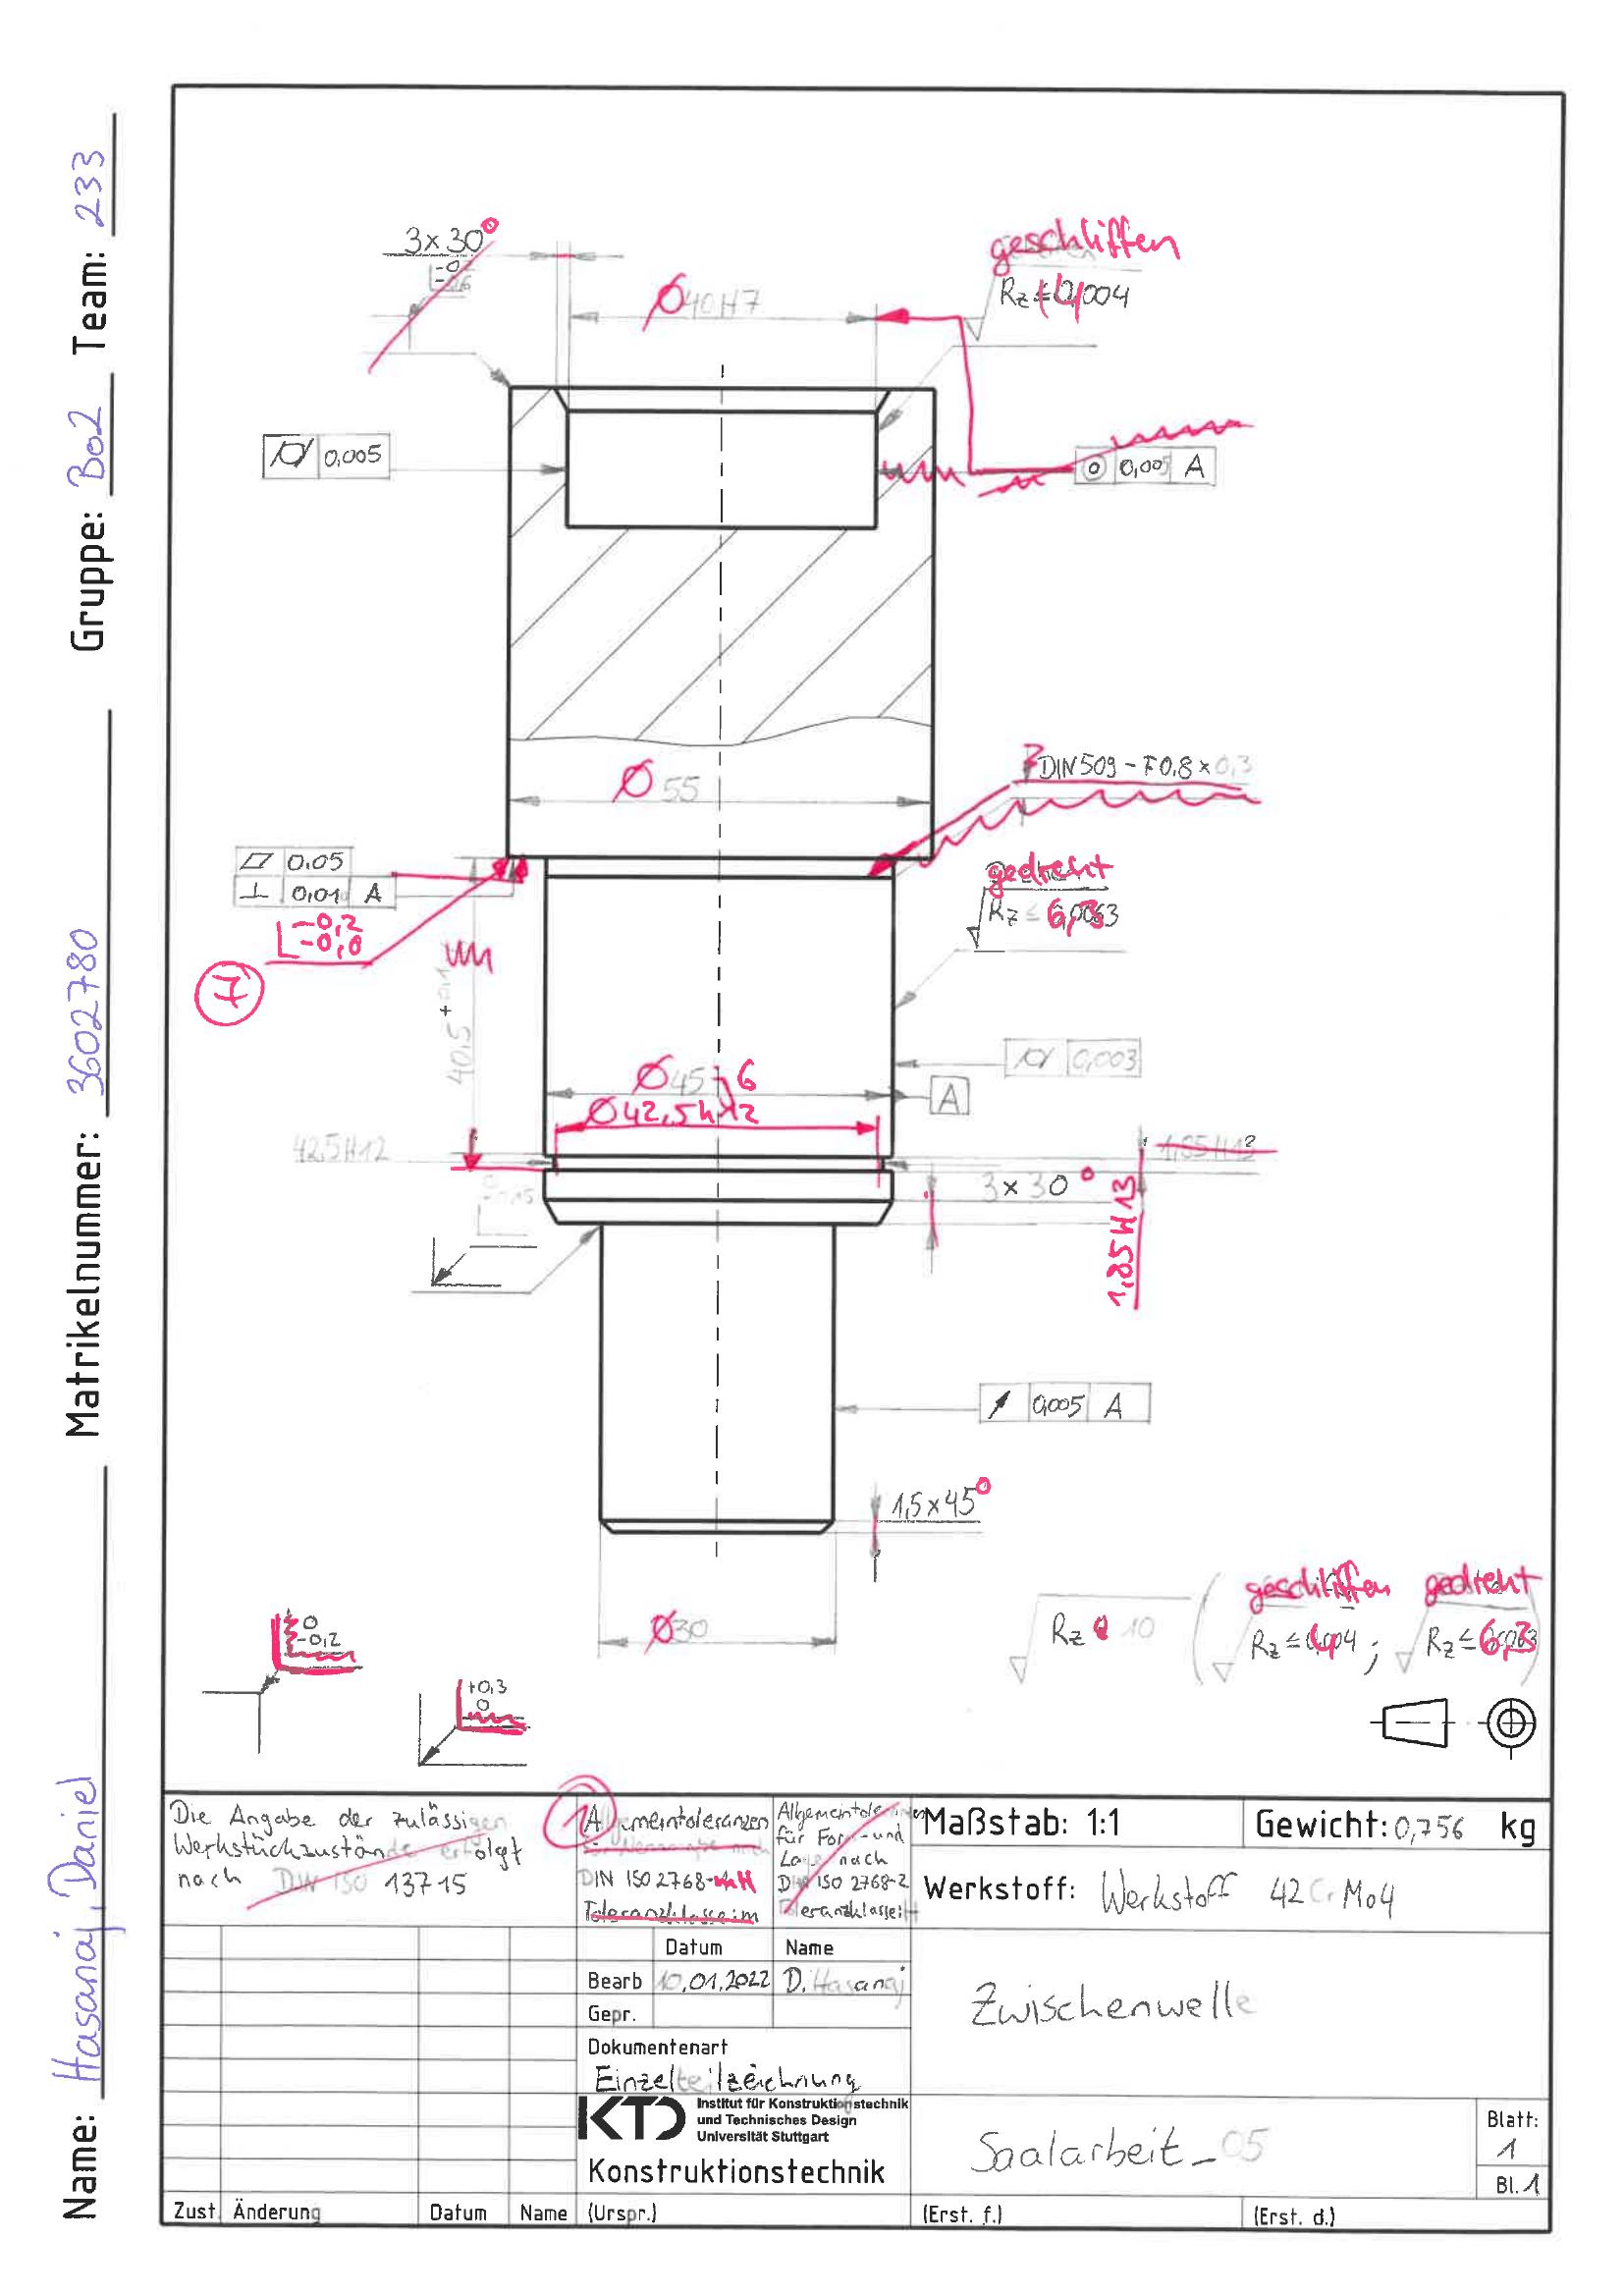 Name: Hasanaj, Daniel
Matrikelnummer: 3602780
Gruppe: Bo2
Team: 233
3x30°
geschliffen
Ø40H7
0,005
0,005 A
DIN 509 - F0,8 x 0,3
Ø 55
0.05
0,01 A
-0,2
7
gedreht
Rz ≤ 6,3
40,5 +0,1
0,003
Ø45 j6
A
Ø42,5h12
42,5H12
1,85H13
3x30°
1,85H13
0,005 A
1,5x45°
Ø30
0
-0,2
+0,3
0
Rz 10
geschliffen
Rz ≤ 4
;
gedreht
Rz ≤ 6,3
Die Angabe der zulässigen
Werkstückzustände erfolgt
nach DIN ISO 13715
1
Allgemeintoleranzen
DIN ISO 2768-mH
Toleranzklasse:m
für Form- und
Lage nach
DIN ISO 2768-2
Toleranzklasse:H
Maßstab: 1:1
Gewicht: 0,756 kg
Werkstoff: Werkstoff 42CrMo4
Datum Name
Bearb 10.01.2022 D. Hasanaj
Gepr.
Dokumentenart
Einzelteilzeichnung
Zwischenwelle
KTD
Institut für Konstruktionstechnik
und Technisches Design
Universität Stuttgart
Konstruktionstechnik
Saalarbeit_05
Blatt:
1
Bl. 1
Zust. Änderung Datum Name (Urspr.) (Erst. f.) (Erst. d.)